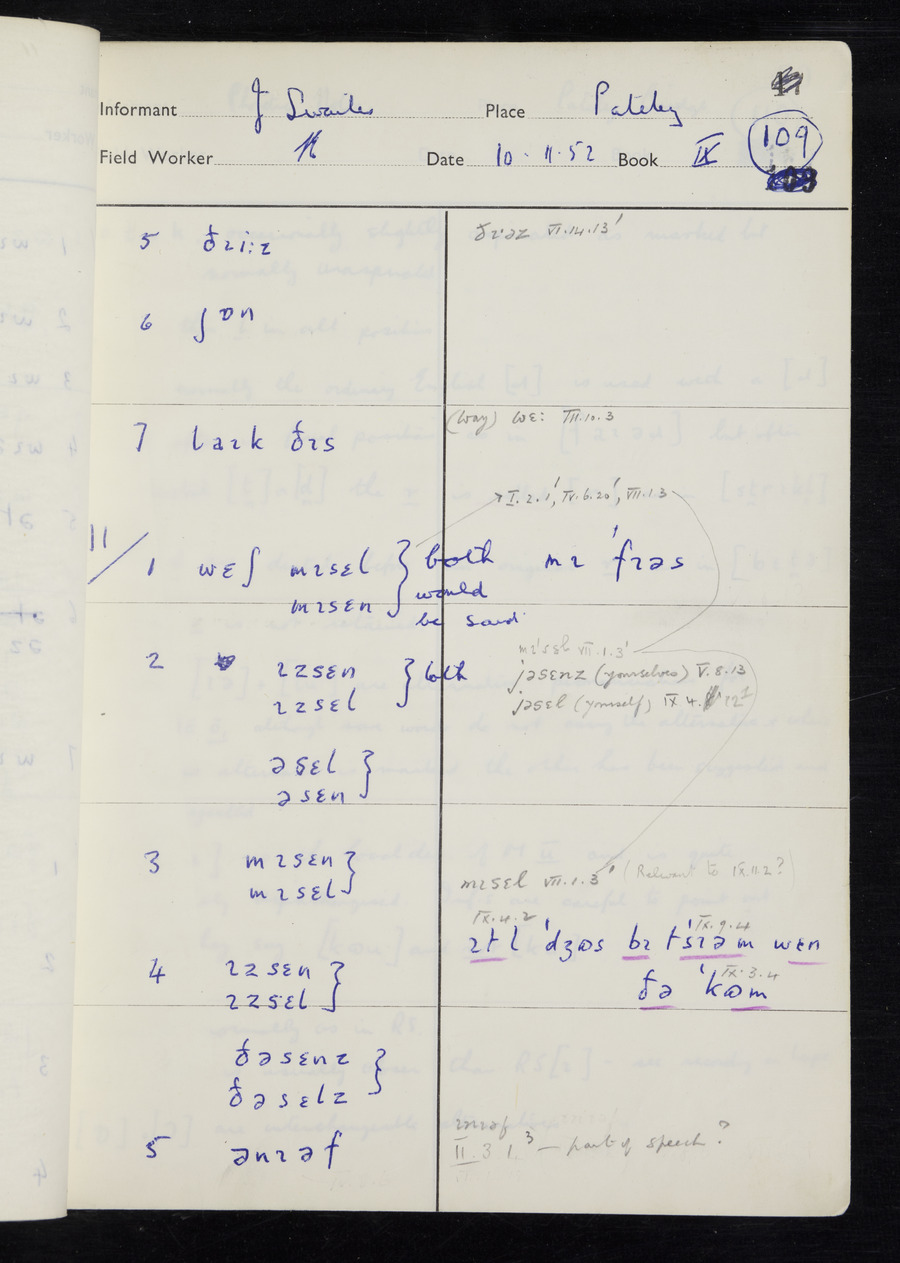 Informant J Swailes Place Pateley
Field Worker Date 10.11.52 Book IX 109
5 ðɪi:z ðɪəz VI.14.13'
6 ʃɒn
7 laɪk ðɪs (way) wɛ: III.10.3
I.2.1', IV.6.20', VII.1.3
11/
1 wɛʃ mɪsɛl } both mɪ 'fɪəs
mɪsɛn would
be said
mɪ'sɛl VII.1.3'
2 ɪzsɛn } both jəsɛnz (yourselves) V.8.13
ɪzsɛl jəsɛl (yourself) IX 4.
əsɛl }
əsɛn
3 mɪsɛn }
mɪsɛl mɪsɛl VII.1.3' (Relevant to IX.11.2?)
IX.4.2 IX.9.4
ɪtl 'dʒɷs bɪ t'sɪəm wɛn
4 ɪzsɛn } IX.3.4
ɪzsɛl ðə 'kɷm
ðəsɛnz }
ðəsɛlz
5 ənɪəf ɪnɪəf
II.3.1.3 — part of speech?